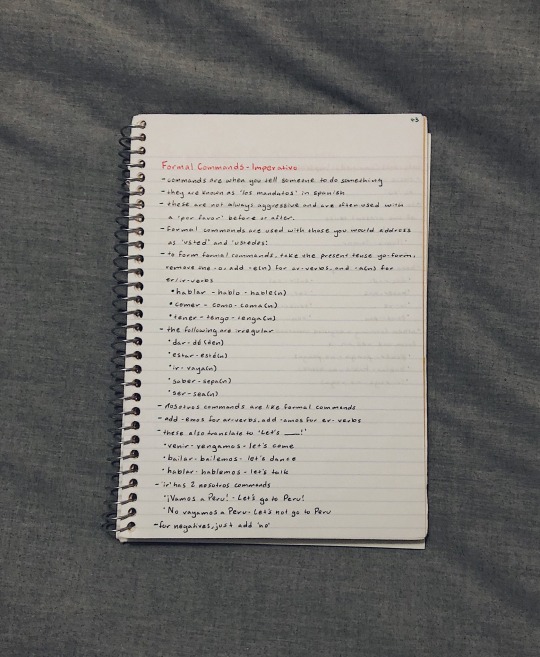 43
Formal Commands - Imperativo
- commands are when you tell someone to do something
- they are known as 'los mandatos' in spanish
- these are not always aggressive and are often used with
a 'por favor' before or after.
- Formal commands are used with those you would address
as 'usted' and 'ustedes'
- to form formal commands, take the present tense yo-form,
remove the -o, add -e(n) for ar-verbs, and -a(n) for
er/ir-verbs
• hablar - hablo - hable(n)
• comer - como - coma(n)
• tener - tengo - tenga(n)
- the following are irregular
• dar - dé (den)
• estar - esté(n)
• ir - vaya(n)
• saber - sepa(n)
• ser - sea(n)
- nosotros commands are like formal commands
- add -emos for ar-verbs, add -amos for er- verbs
- these also translate to 'Let's ___!'
• venir - vengamos - let's come
• bailar - bailemos - let's dance
• hablar - hablemos - let's talk
- 'ir' has 2 nosotros commands
• ¡Vamos a Peru! - Let's go to Peru!
• No vayamos a Peru - Let's not go to Peru
- for negatives, just add 'no'